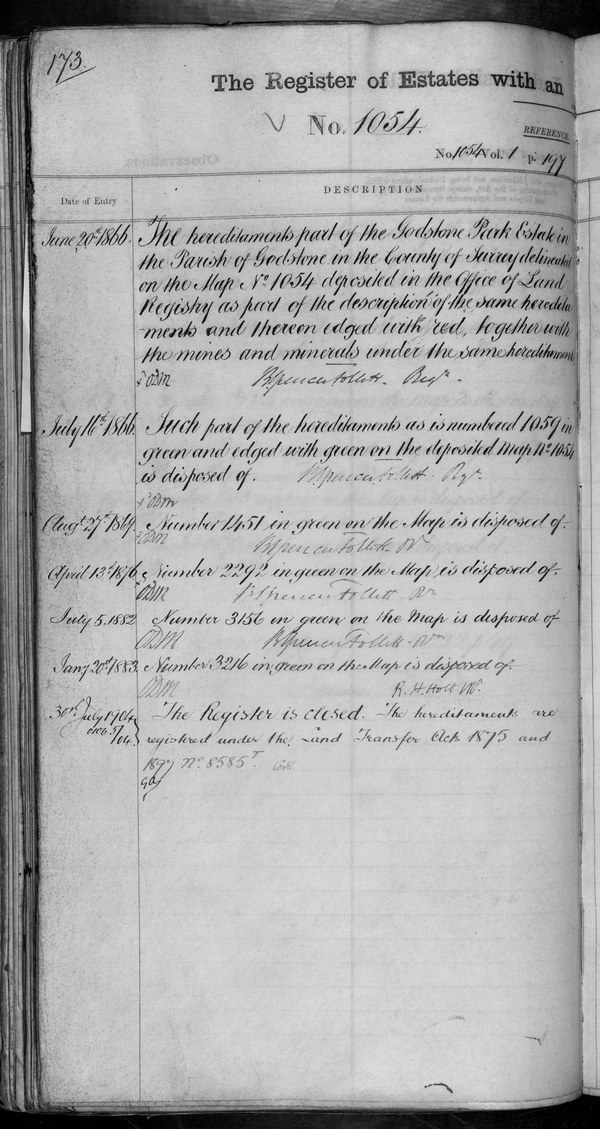 173.
The Register of Estates with an
No. 1054.
REFERENCE
No. 1054 Vol. 1 p. 197
Observations
Date of Entry
DESCRIPTION
June 20th 1866. The hereditaments part of the Godstone Park Estate in
the Parish of Godstone in the County of Surrey delineated
on the Map No 1054 deposited in the Office of Land
Registry as part of the description of the same heredita
ments and thereon edged with red, together with
the mines and minerals under the same hereditaments
ODM Brent Spencer Follett. Regr.
July 16th 1866. Such part of the hereditaments as is numbered 1059 in
green and edged with green on the deposited Map No 1054
is disposed of. BSpencer Follett Regr.
ODM
Augt 27th 1869. Number 1451 in green on the Map is disposed of.
ODM BSpencer Follett
April 13th 1876 Number 2292 in green on the Map is disposed of.
ODM BSpencer Follett
July 5. 1882 Number 3156 in green on the Map is disposed of
ODM BSpencer Follett
Jany 20th 1883. Number 3216 in green on the Map is disposed of.
ODM R. H. Holt
30th July 1904 The Register is closed. The hereditaments are
registered under the Land Transfer Acts 1875 and
1897 No. 8585